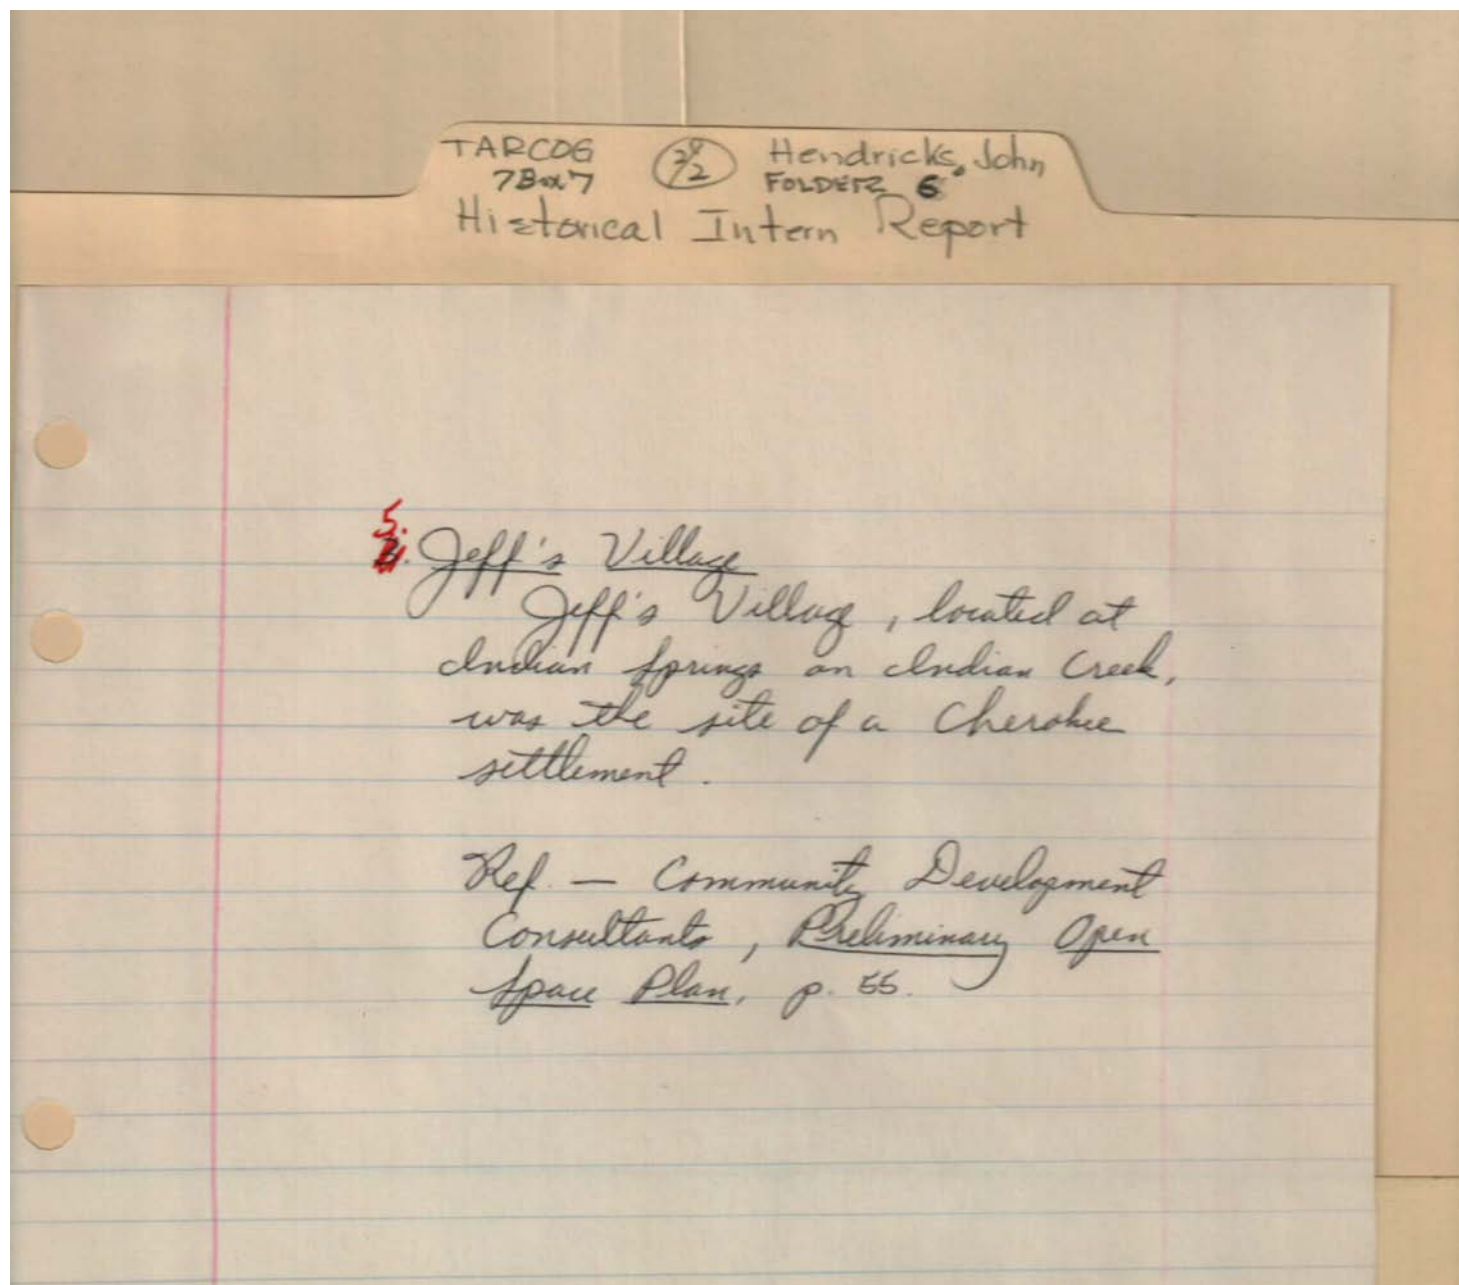 TARCOG Hendricks, John
Box 7 FOLDER 6
Historical Intern Report
5.
Jeff's Village
Jeff's Village, located at
Indian Springs on Indian Creek,
was the site of a Cherokee
settlement.
Ref. — Community Development
Consultants, Preliminary Open
Space Plan, p. 55.